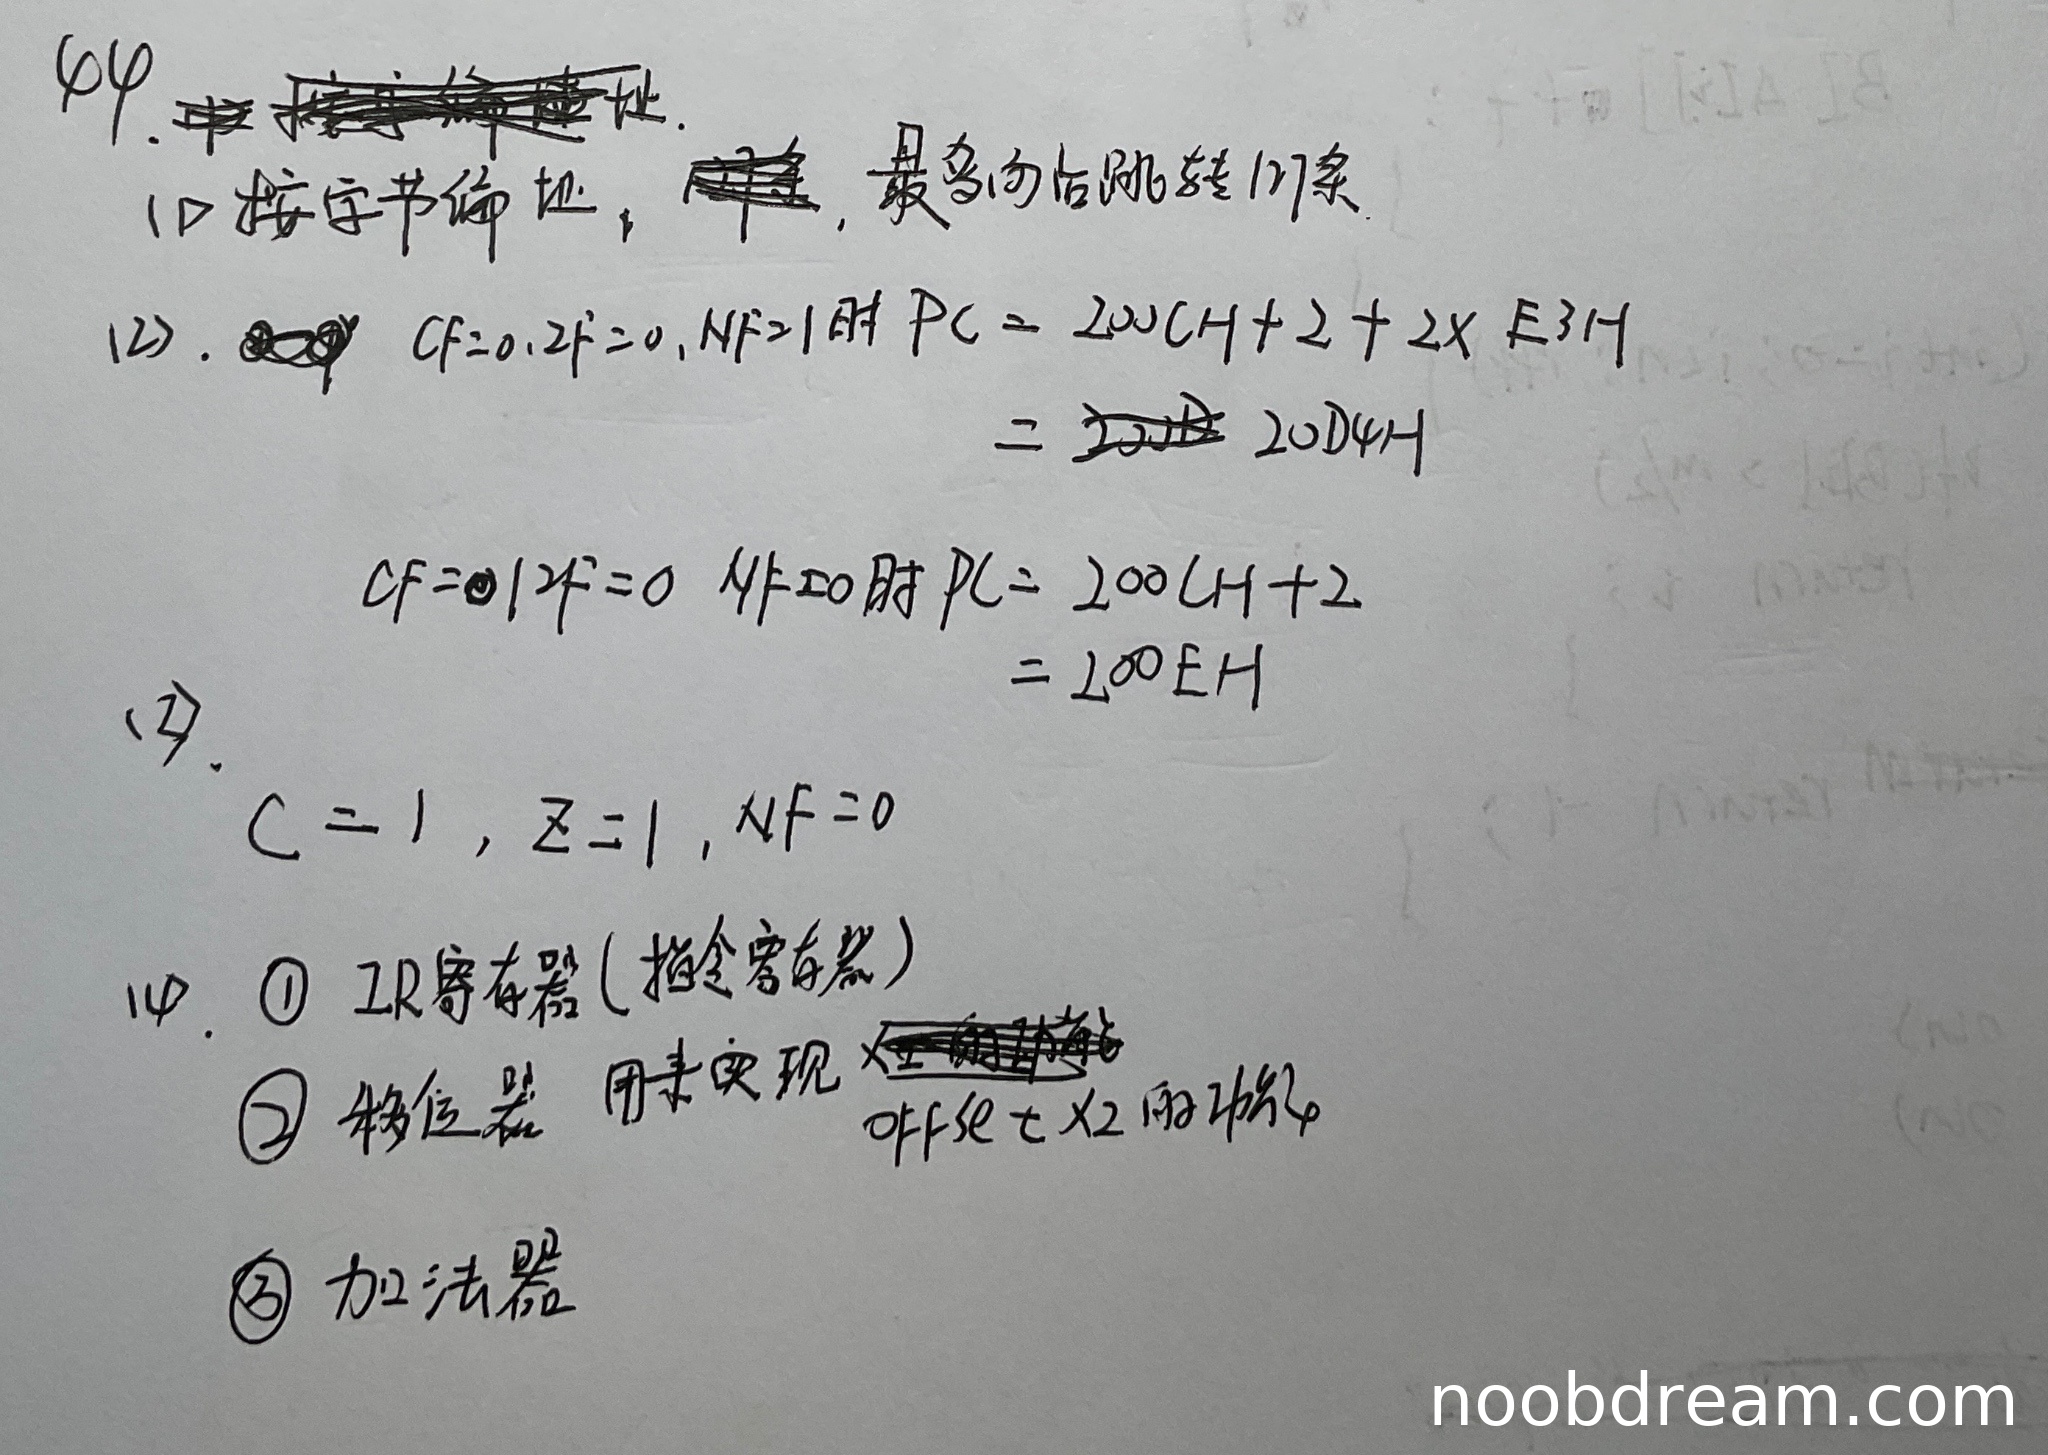 44.
址.
(1) 按字节编址, , 最多向后跳转127条.
(2). CF=0.ZF=0,NF=1时 PC = 200CH+2+2X E3H
= 20D4H
CF=0|ZF=0 NF=0时 PC= 200CH+2
= 200EH
(2).
C=1, Z=1, NF=0
(4). ① IR寄存器(指令寄存器)
② 移位器 用来实现
offset X2的功能
③ 加法器
noobdream.com